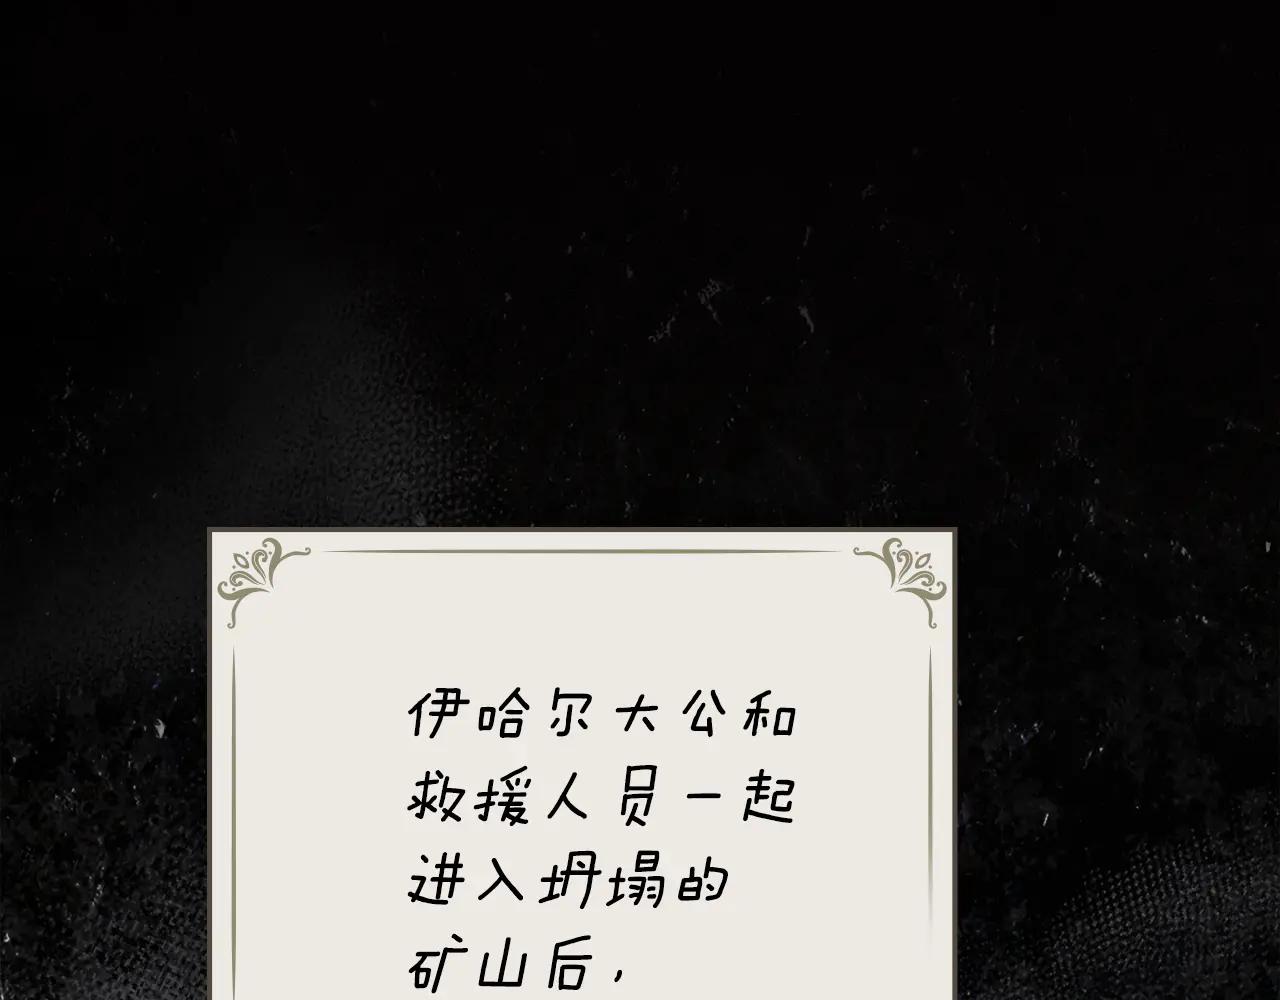 伊哈尔大公和
救援人员一起
进入坍塌的
矿山后，